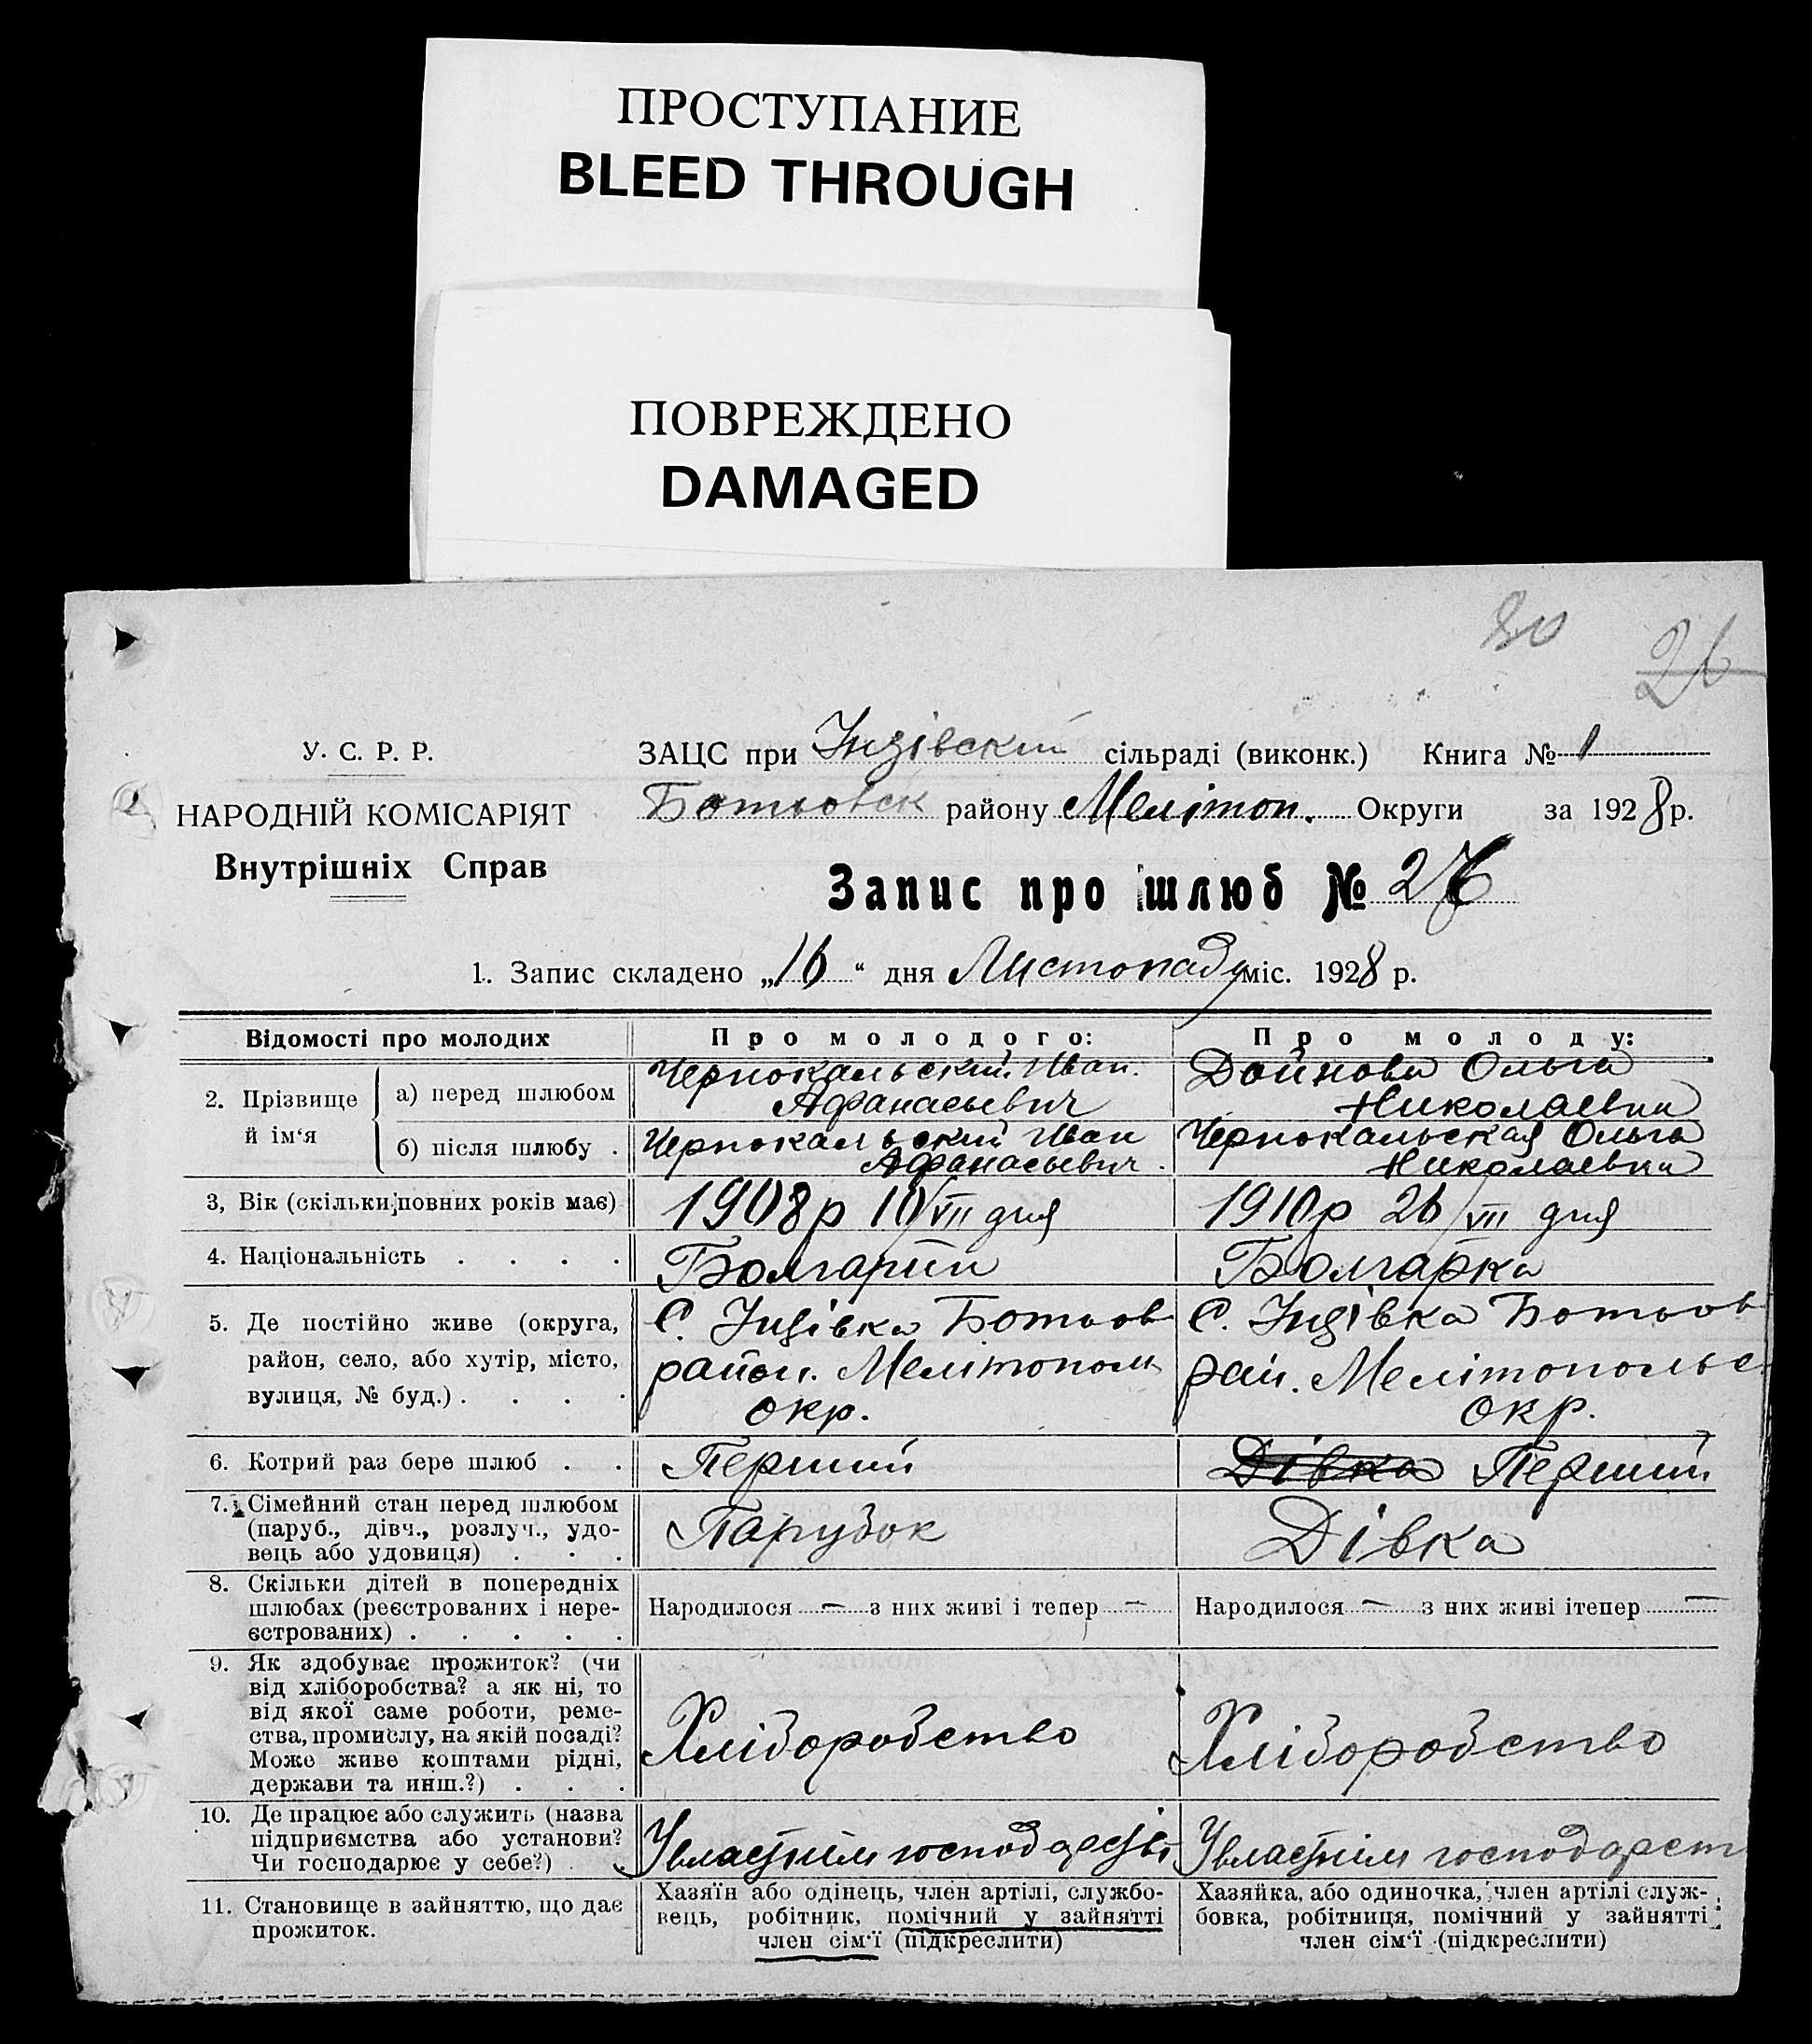 ПРОСТУПАНИЕ
BLEED THROUGH
ПОВРЕЖДЕНО
DAMAGED
30 26
У. С. Р. Р.
НАРОДНІЙ КОМІСАРІЯТ
Внутрішніх Справ
ЗАЦС при Інзівский сільраді (виконк.) Книга № 1
Ботьовск району Мелітоп. Округи за 1928 р.
Запис про шлюб № 26
1. Запис складено „16“ дня Листопаду міс. 1928 р.
Відомості про молодих
Про молодого:
Про молоду:
2. Прізвище й ім‘я
а) перед шлюбом
Чернокальский Иван
Афанасьевич
Дойнова Ольга
Николаевна
б) після шлюбу .
Чернокальский Иван
Афанасьевич.
Чернокальская Ольга
Николаевна
3, Вік (скільки повних років має)
1908р 10/VII дня
1910р 26/VII дня
4. Національність . . . .
Болгарин
Болгарка
5. Де постійно живе (округа,
район, село, або хутір, місто,
вулиця, № буд.) . . . .
С. Інзівка Ботьов
район. Мелітопол
окр.
С. Інзівка Ботьов
рай. Мелітопольс
окр.
6. Котрий раз бере шлюб . .
Перший
Дівка Перший
7. Сімейний стан перед шлюбом
(паруб., дівч., розлуч., удо-
вець або удовиця) . . .
Парубок
Дівка
8. Скільки дітей в попередніх
шлюбах (реєстрованих і нере-
єстрованих) . . . . .
Народилося — з них живі і тепер —
Народилося — з них живі ітепер —
9. Як здобуває прожиток? (чи
від хліборобства? а як ні, то
від якої саме роботи, реме-
ства, промислу, на якій посаді?
Може живе коштами рідні,
держави та инш.?) . . .
Хліборобство
Хліборобство
10. Де працює або служить (назва
підприємства або установи?
Чи господарює у себе?) .
У власнім господарстві
У власнім господарст
11. Становище в зайняттю, що дає
прожиток.
Хазяїн або одінець, член артілі, службо-
вець, робітник, помічний у зайнятті
член сім‘ї (підкреслити)
Хазяйка, або одиночка, член артілі служ-
бовка, робітниця, помічний у зайнятті
член сім‘ї (підкреслити)